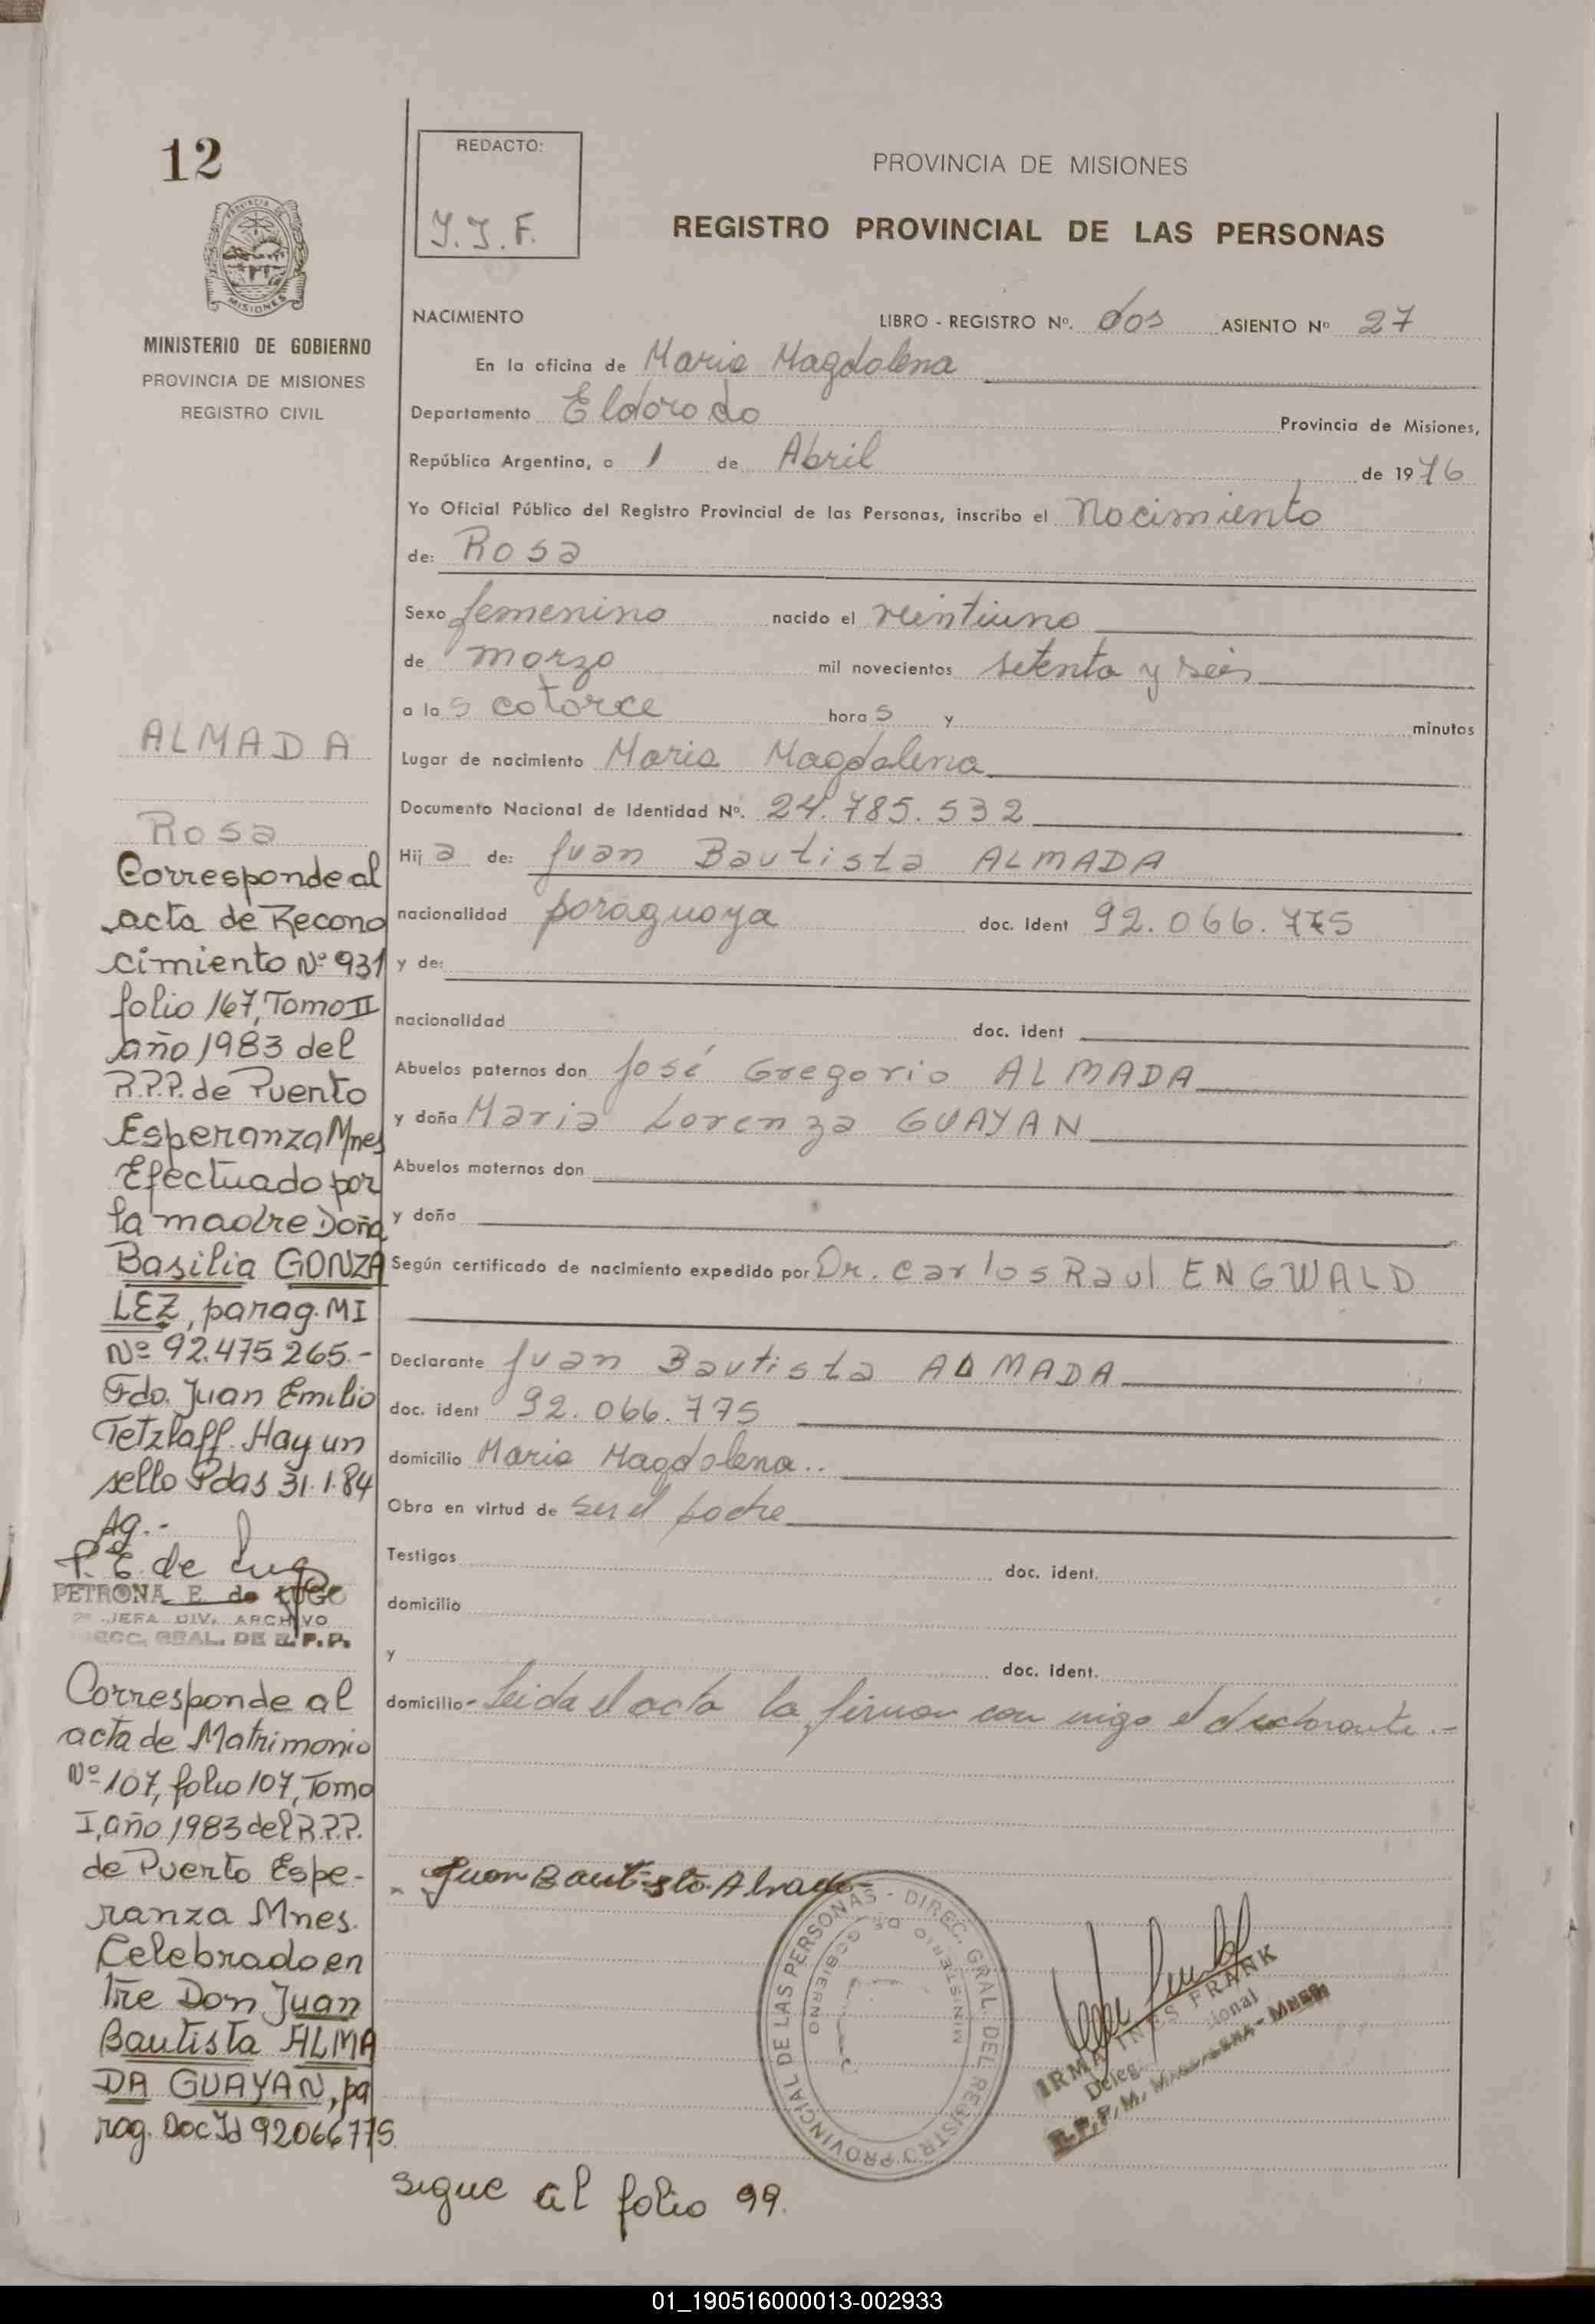 12
PROVINCIA DE
MISIONES
MINISTERIO DE GOBIERNO
PROVINCIA DE MISIONES
REGISTRO CIVIL
REDACTO:
I.I.F.
PROVINCIA DE MISIONES
REGISTRO PROVINCIAL DE LAS PERSONAS
NACIMIENTO LIBRO - REGISTRO Nº. dos ASIENTO Nº 27
En la oficina de Maria Magdalena
Departamento Eldorado Provincia de Misiones,
República Argentina, a 1 de Abril de 1976
Yo Oficial Público del Registro Provincial de las Personas, inscribo el Nacimiento
de: Rosa
Sexo femenino nacido el veintiuno
de marzo mil novecientos setenta y seis
a las catorce horas y minutos
Lugar de nacimiento Maria Magdalena
Documento Nacional de Identidad Nº. 24.785.532
Hija de: Juan Bautista ALMADA
nacionalidad paraguaya doc. Ident 92.066.775
y de:
nacionalidad doc. ident
Abuelos paternos don José Gregorio ALMADA
y doña Maria Lorenza GUAYAN
Abuelos maternos don
y doña
Según certificado de nacimiento expedido por Dr. Carlos Raul ENGWALD
Declarante Juan Bautista ALMADA
doc. ident 92.066.775
domicilio Maria Magdalena..
Obra en virtud de ser el padre
Testigos doc. ident.
domicilio
y doc. ident.
domicilio- Leida el acta la firman con migo el declarante.-
Juan Bautista Almada
DIREC. GRAL. DEL REGISTRO PROVINCIAL DE LAS PERSONAS -
MINISTERIO DE GOBIERNO
IRMA INES FRANK
Deleg.
R.P.P. M. MAGDALENA - MNES.
sigue al folio 99.
ALMADA
Rosa
Corresponde al
acta de Recono
cimiento Nº 931
folio 167, Tomo II
año 1983 del
R.P.P. de Puerto
Esperanza Mnes
Efectuado por
la madre Doña
Basilia GONZA
LEZ, parag. MI
Nº 92.475 265.-
Fdo. Juan Emilio
Tetzlaff. Hay un
sello Pdas 31.1.84
Ag.-
P. E. de Lugo
PETRONA E. de LUGO
2ª JEFA DIV. ARCHIVO
DIRECC. GRAL. DE R.P.P.
Corresponde al
acta de Matrimonio
Nº 107, folio 107, Tomo
I, año 1983 del R.P.P.
de Puerto Espe-
ranza Mnes.
Celebrado en
tre Don Juan
Bautista ALMA
DA GUAYAN, pa
rag. Doc Id 92066775
01_190516000013-002933